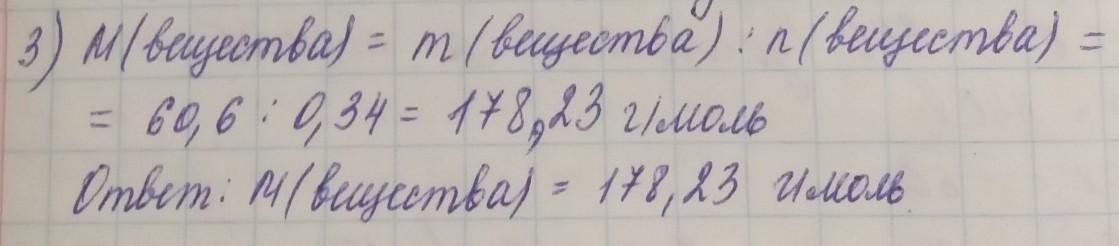 3) M(вещества) = m(вещества) : n(вещества) =
= 60,6 : 0,34 = 178,23 г/моль
Ответ: M(вещества) = 178,23 г/моль